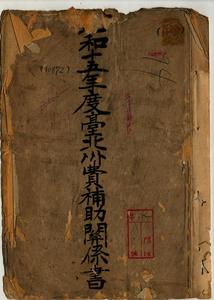 和十五年度臺北州費補助關係書
(10872)